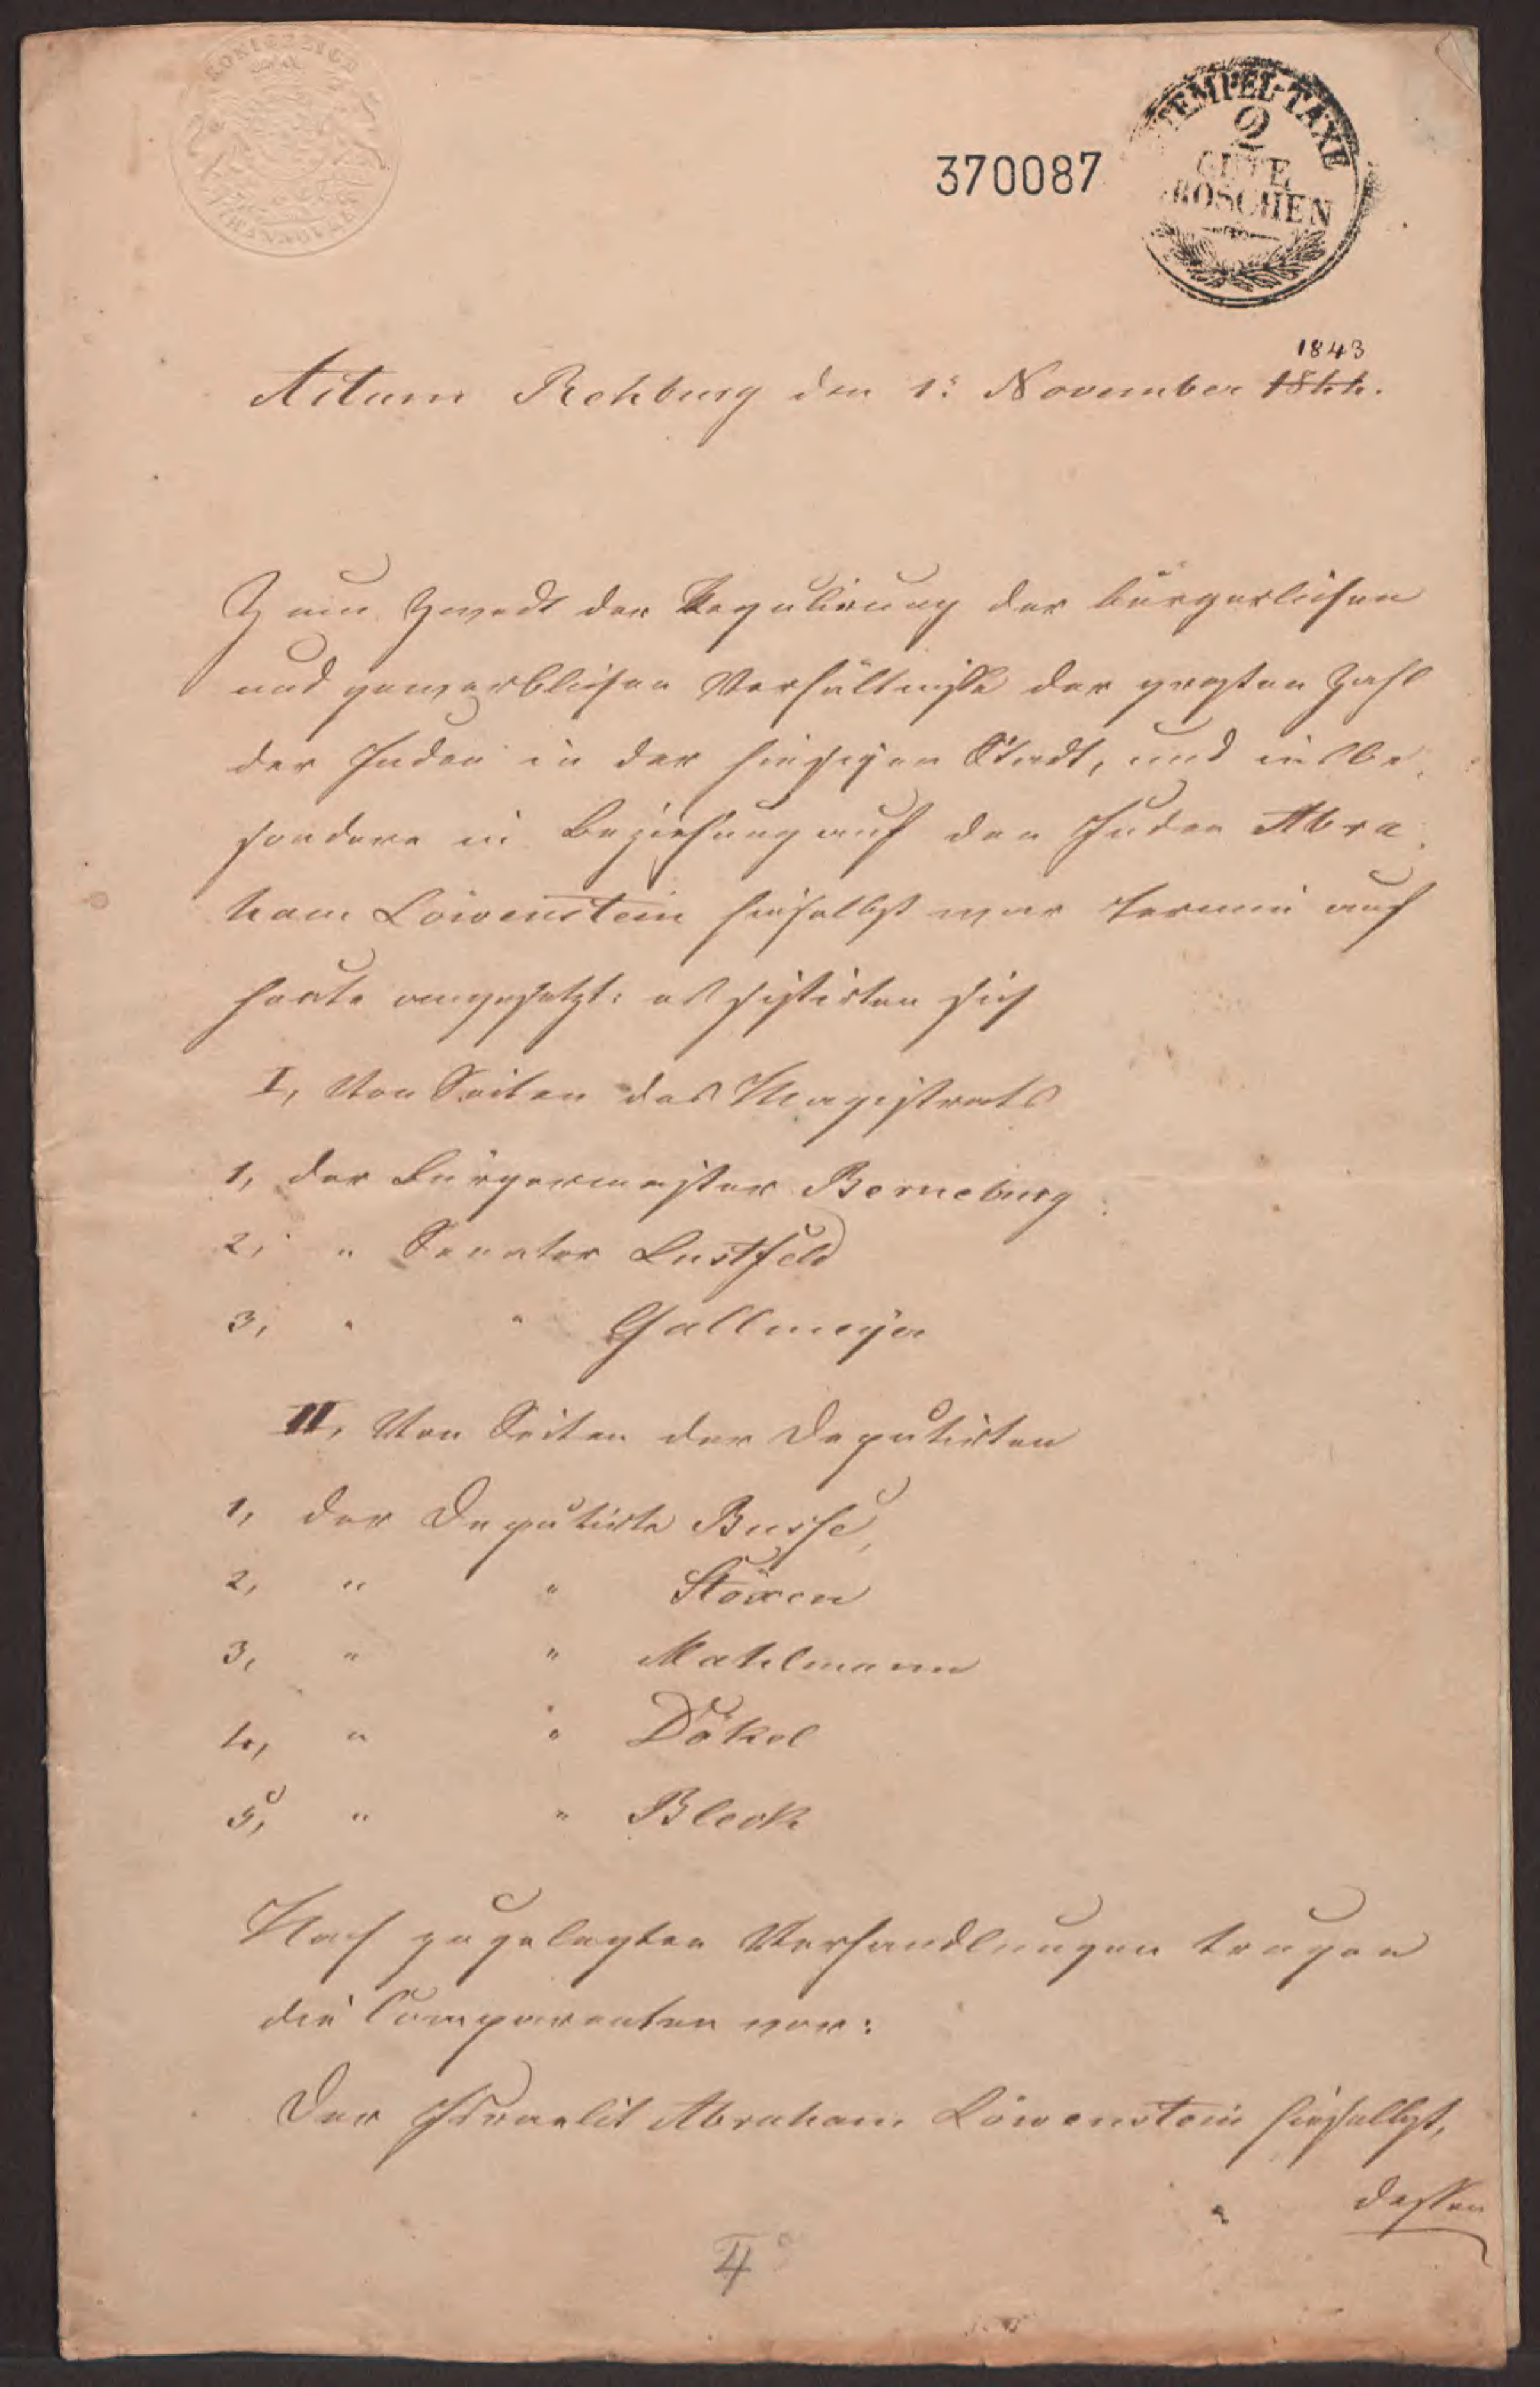 KÖNIGREICH
HANNOVER
STEMPEL-TAXE
2
GUTE
GROSCHEN
370087
1843
Actum Rehburg den 1s November 1844.
Zum Zweck der Regulirung der bürgerlichen
und gewerblichen Verhältnisse der großen Zahl
der Juden in der hiesigen Stadt, und insbe
sondere in Beziehung auf den Juden Abra
ham Löwenstein hieselbst war Termin auf
heute angesetzt: es sistirten sich
I, Von Seiten des Magistrats
1, der Bürgermeister Berneburg
2, " Senator Lustfeld
3, " " Gallmeyer
II, Von Seiten der Deputirten
1, der Deputirte Busse,
2, " " Stöxen
3, " " Mahlmann
4, " " Dökel
5, " " Bleck
Nach zugelegten Verhandlungen trugen
die Comparenten vor:
Der Israelit Abraham Löwenstein hieselbst,
dessen
4